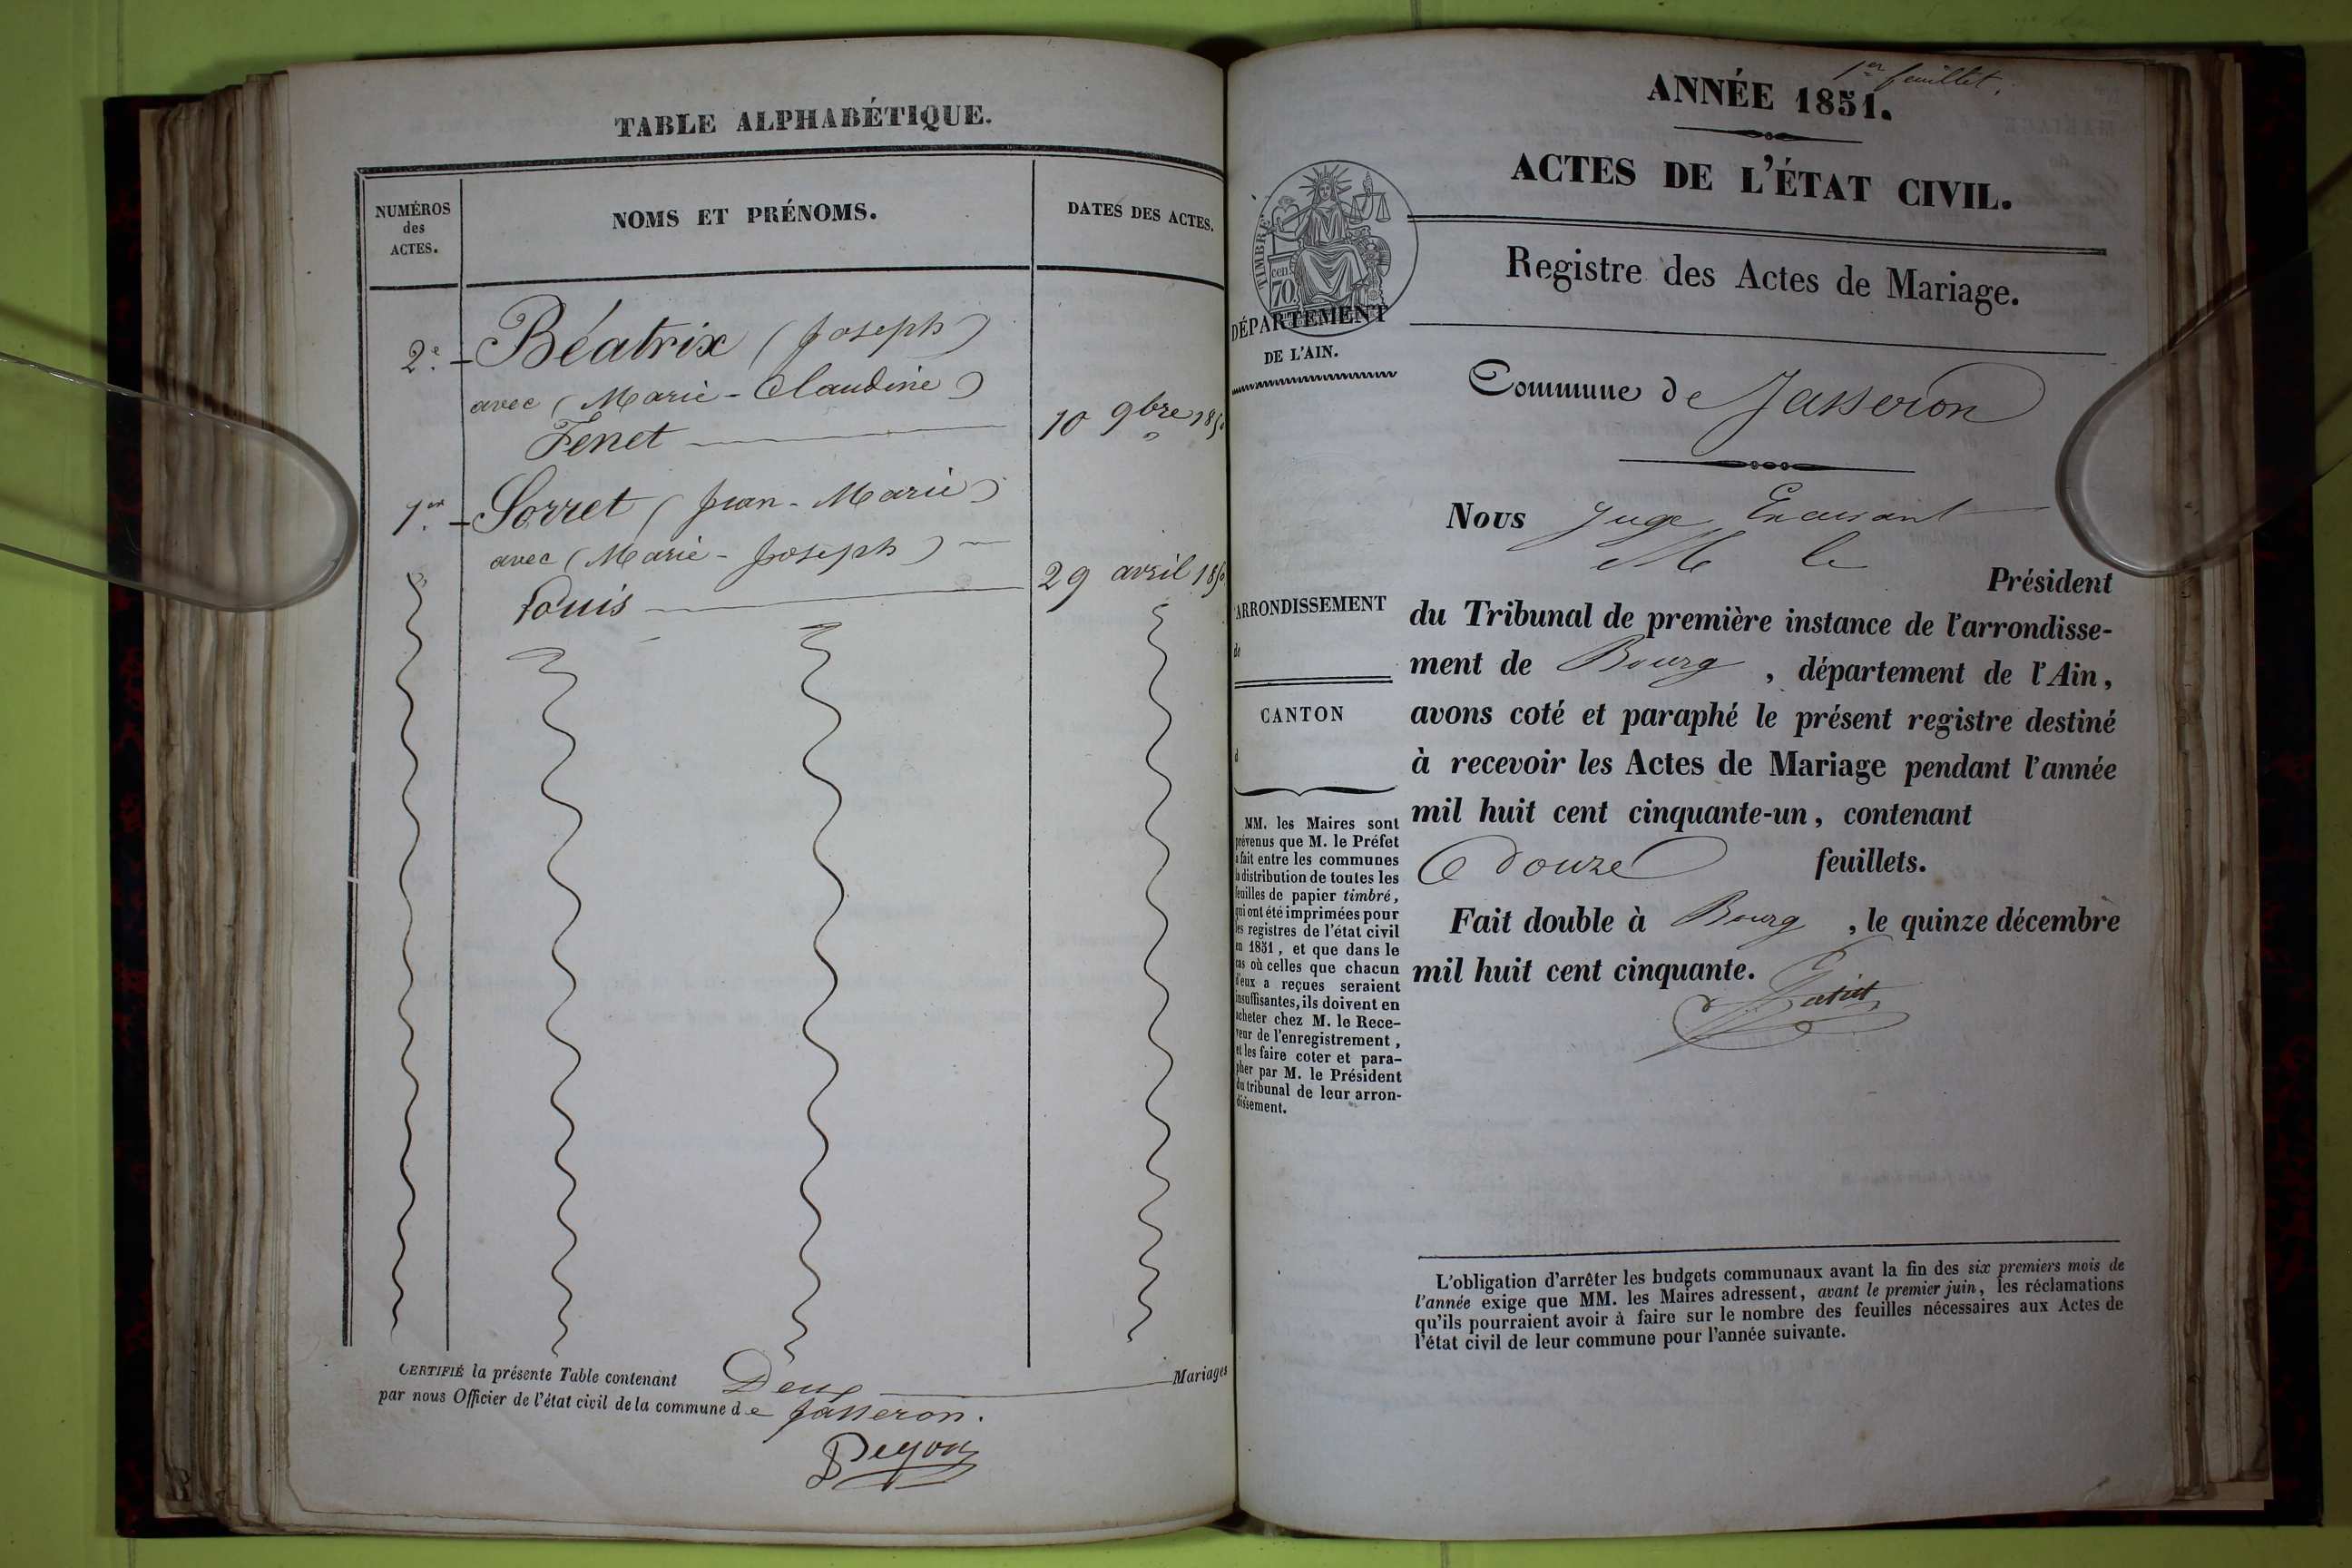 TABLE ALPHABÉTIQUE.
NUMÉROS
des
ACTES.
NOMS ET PRÉNOMS.
DATES DES ACTES.
2e. - Béatrix (Joseph)
avec (Marie-Claudine)
Fenet
10 9bre 185
1er. - Sorret (Jean-Marie)
avec (Marie-Joseph)
Louis
29 avril 185
CERTIFIÉ la présente Table contenant Deux Mariages
par nous Officier de l'état civil de la commune de Jasseron.
1er feuillet.
ANNÉE 1851.
ACTES DE L'ÉTAT CIVIL.
TIMBRE
cent
70
DÉPARTEMENT
DE L'AIN.
Registre des Actes de Mariage.
Commune de Jasseron
Nous Juge
M le
Président
du Tribunal de première instance de l'arrondisse-
ment de Bourg , département de l'Ain,
avons coté et paraphé le présent registre destiné
à recevoir les Actes de Mariage pendant l'année
mil huit cent cinquante-un, contenant
douze feuillets.
Fait double à Bourg , le quinze décembre
mil huit cent cinquante.
ARRONDISSEMENT
de
CANTON
d
MM. les Maires sont
prévenus que M. le Préfet
a fait entre les communes
la distribution de toutes les
feuilles de papier timbré,
qui ont été imprimées pour
les registres de l'état civil
en 1851, et que dans le
cas où celles que chacun
d'eux a reçues seraient
insuffisantes, ils doivent en
acheter chez M. le Rece-
veur de l'enregistrement,
et les faire coter et para-
pher par M. le Président
du tribunal de leur arron-
dissement.
L'obligation d'arrêter les budgets communaux avant la fin des six premiers mois de
l'année exige que MM. les Maires adressent, avant le premier juin, les réclamations
qu'ils pourraient avoir à faire sur le nombre des feuilles nécessaires aux Actes de
l'état civil de leur commune pour l'année suivante.